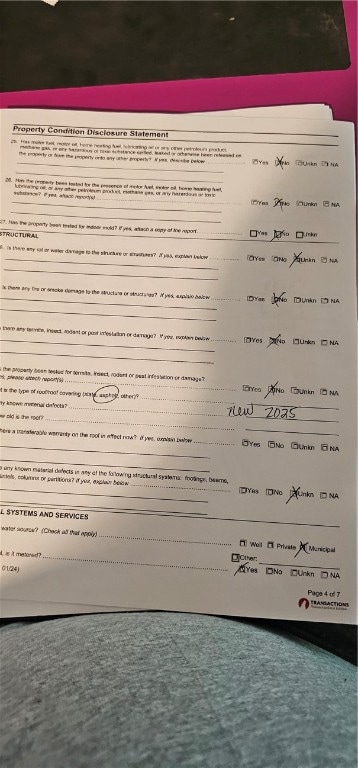 Property Condition Disclosure Statement
25. Has motor fuel, motor oil, home heating fuel, lubricating oil or any other petroleum product,
methane gas, or any hazardous or toxic substance spilled, leaked or otherwise been released on
the property or from the property onto any other property? If yes, describe below
Yes No Unkn NA
26. Has the property been tested for the presence of motor fuel, motor oil, home heating fuel,
lubricating oil, or any other petroleum product, methane gas, or any hazardous or toxic
substance? If yes, attach report(s)
Yes No Unkn NA
27. Has the property been tested for indoor mold? If yes, attach a copy of the report.
Yes No Unkn
STRUCTURAL
Is there any rot or water damage to the structure or structures? If yes, explain below
Yes No Unkn NA
is there any fire or smoke damage to the structure or structures? If yes, explain below
Yes No Unkn NA
there any termite, insect, rodent or pest infestation or damage? If yes, explain below
Yes No Unkn NA
the property been tested for termite, insect, rodent or pest infestation or damage?
please attach report(s)
Yes No Unkn NA
is the type of roof/roof covering (slate, asphalt, other)?
ny known material defects?
new 2025
old is the roof?
here a transferable warranty on the roof in effect now? If yes, explain below
Yes No Unkn NA
any known material defects in any of the following structural systems: footings, beams,
lintels, columns or partitions? If yes, explain below
Yes No Unkn NA
L SYSTEMS AND SERVICES
water source? (Check all that apply)
Well Private Municipal
Other:
is it metered?
Yes No Unkn NA
01/24)
Page 4 of 7
TRANSACTIONS